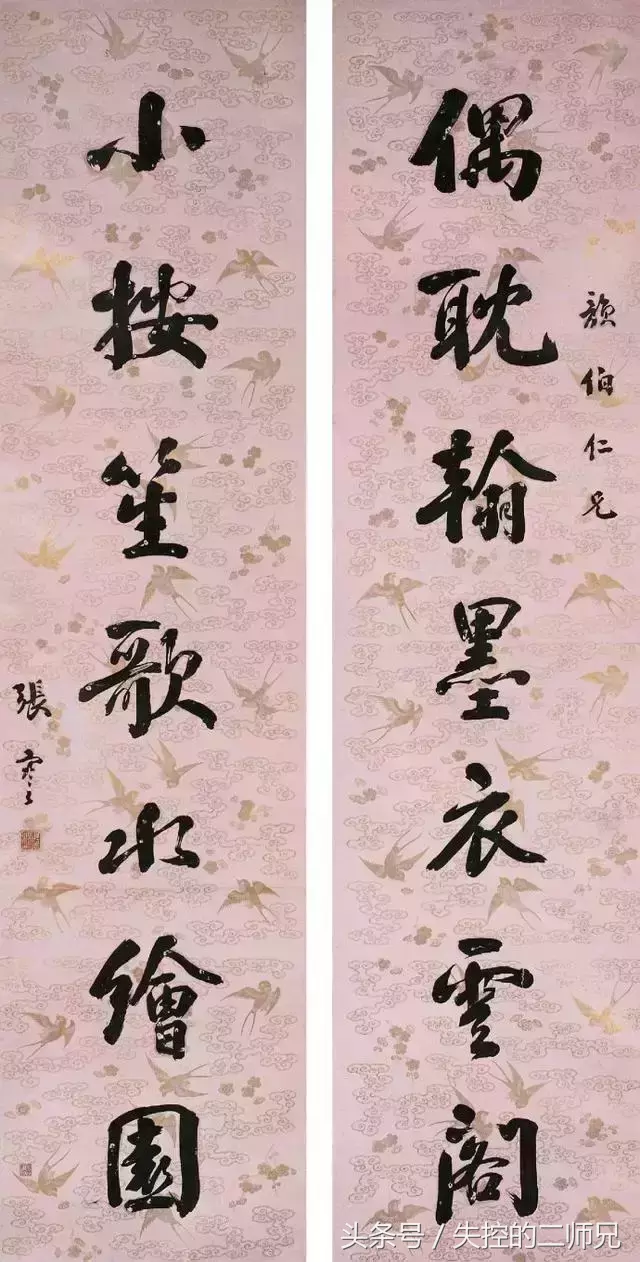 伯仁兄
偶耽翰墨衣雲閣
小按笙歌水繪園
張謇
头条号 / 失控的二师兄